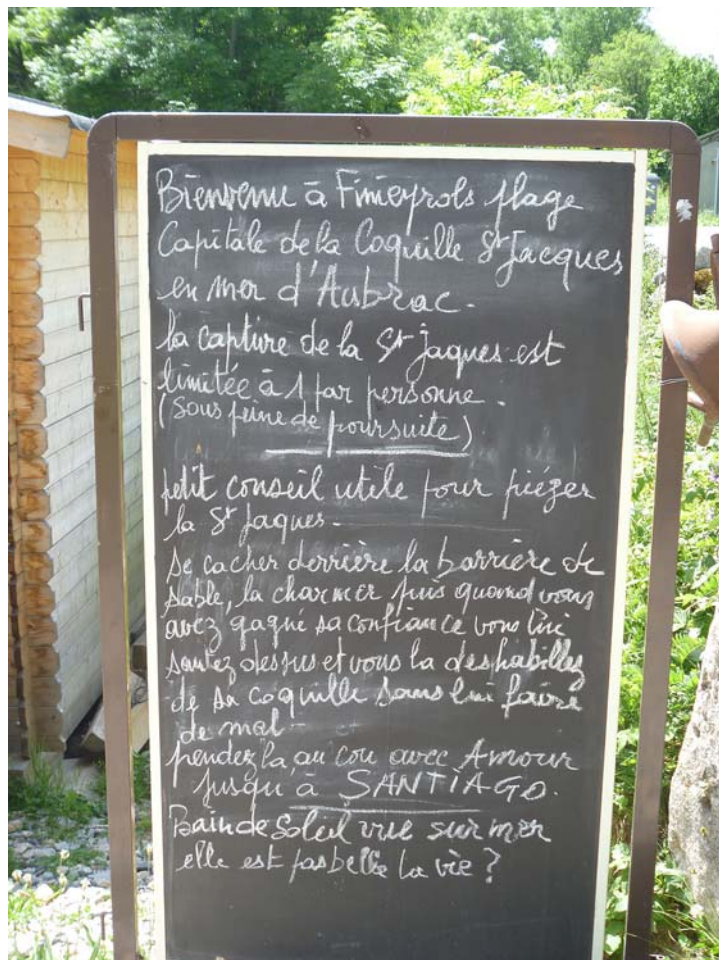 Bienvenu à Finieyrols plage
Capitale de la Coquille St Jacques
en mer d'Aubrac.
la capture de la St jaques est
limitée à 1 par personne.
(sous peine de poursuite)
petit conseil utile pour piézer
la St jaques.
se cacher derrière la barrière de
sable, la charmer puis quand vous
avez gagné sa confiance vous lui
sautez dessus et vous la deshabillez
de sa coquille sans lui faire
de mal
pendez la au cou avec Amour
jusqu'à SANTIAGO.
Bain de Soleil vue sur mer
elle est pas belle la vie ?